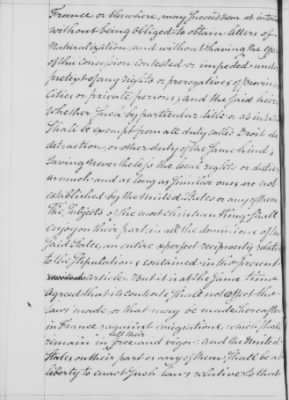 France or elsewhere, may succeed them ab intes
without being obliged to obtain letters of
naturalization, and without having the effe
of this concession contested or impeded unde
pretext of any rights or prerogatives of provinc
Cities or private persons; and the said heirs
whether such by particular title or ab intes
shall be exempt from all duty called Droit de
detraction, or other duty of the same kind;
saving nevertheless the local rights or duties
as much and as long as similar ones are not
established by the United States or any of them.
The subjects of the most christian King shall
enjoy on their part, in all the dominions of the
said States, an entire & perfect reciprocity relativ
to the stipulations contained in the present
article. But it is at the same time
agreed that its contents shall not affect the
laws made or that may be made hereafter
in France against emigrations, which shall
remain in all their force and vigor: and the United
States on their part or any of them, shall be at
liberty to enact such laws relative to that